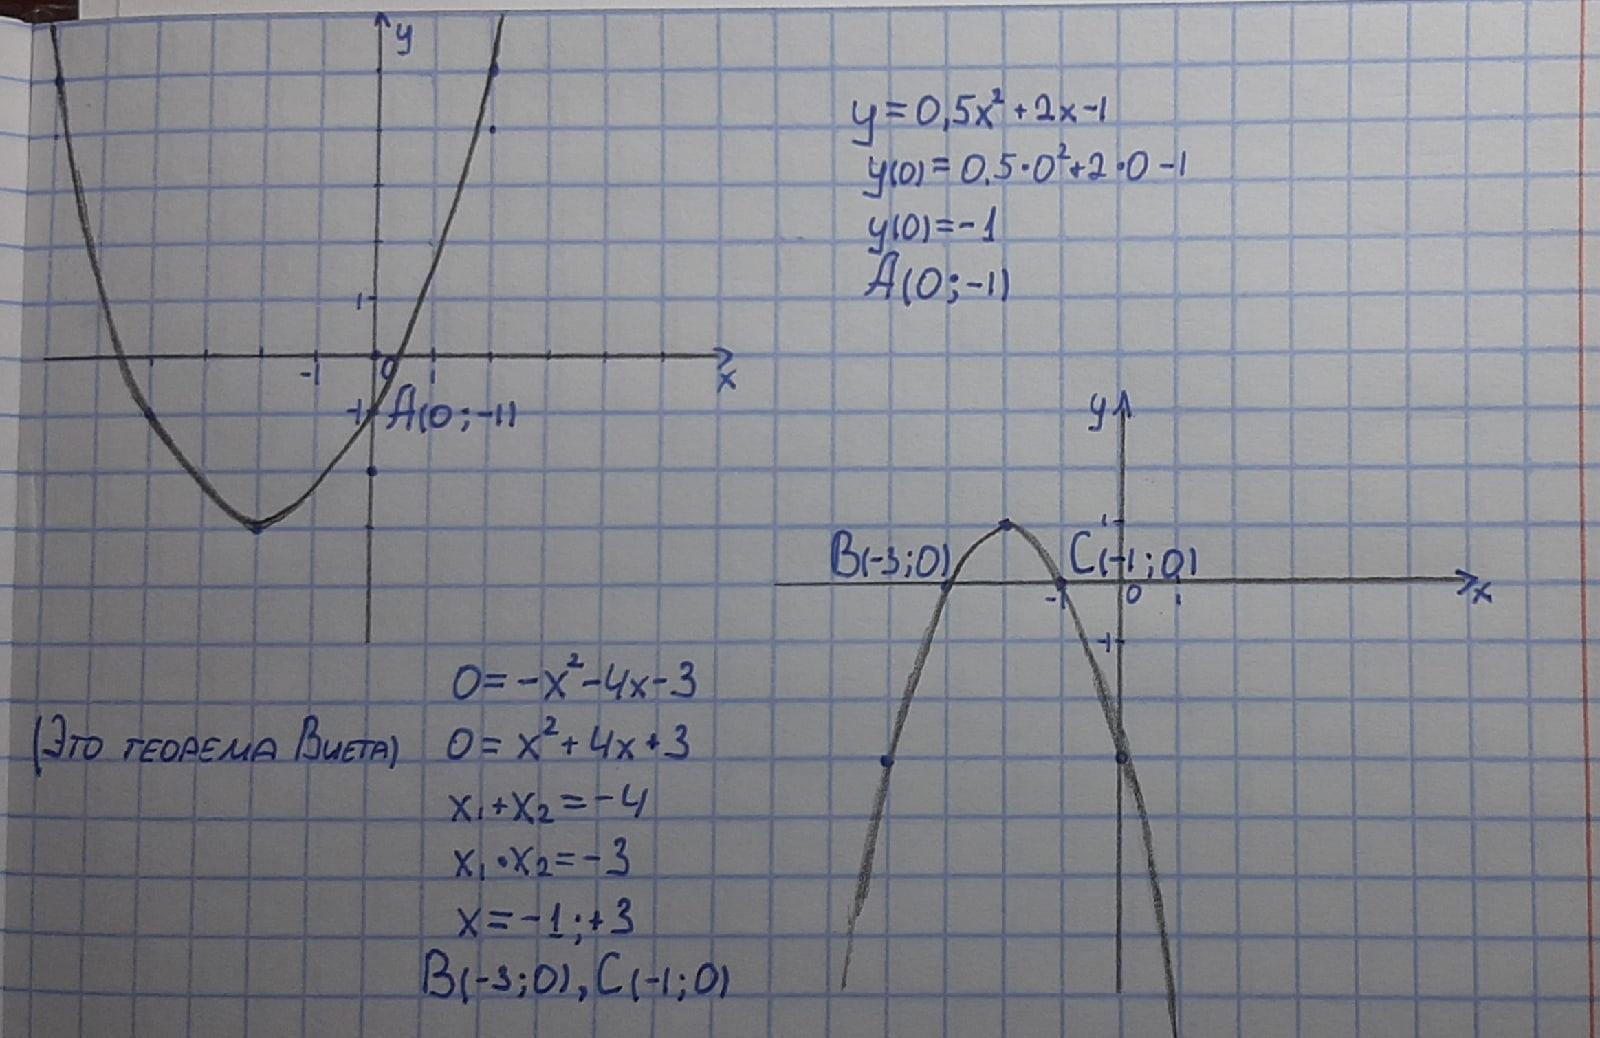 y
1
-1 0 1 x
-1 A(0;-1)
y=0,5x²+2x-1
y(0)=0.5·0²+2·0-1
y(0)=-1
A(0;-1)
y
1
B(-3;0) C(-1;0)
-1 0 1 x
-1
0=-x²-4x-3
(Это теорема Виета) 0=x²+4x+3
x₁+x₂=-4
x₁·x₂=-3
x=-1;+3
B(-3;0), C(-1;0)